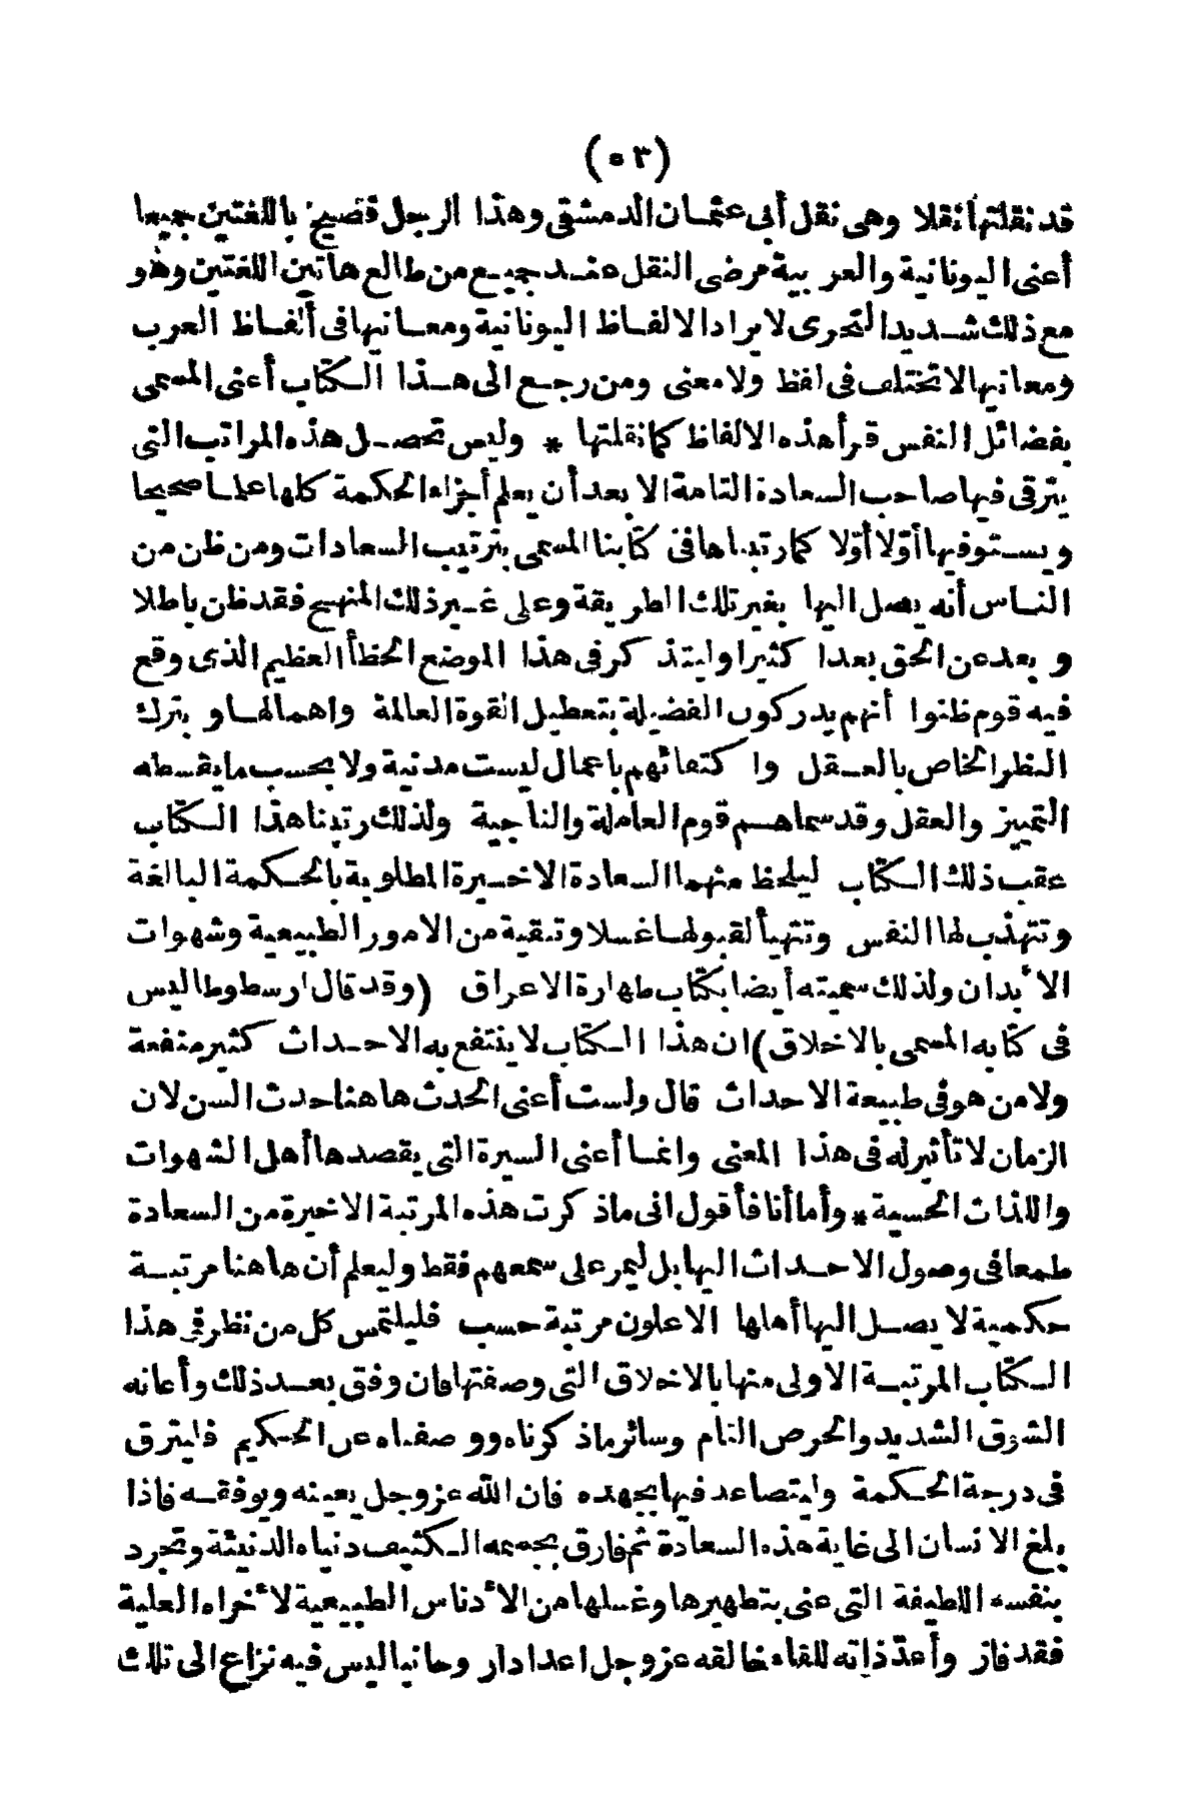 (٥٣)
قد نقلتها نقلا وهى نقل أبى عثمان الدمشقى وهذا الرجل فصيح باللغتين جميعا
أعنى اليونانية والعربية مرضى النقل عند جميع من طالع هاتين اللغتين وهو
مع ذلك شديد التحرى لايراد الالفاظ اليونانية ومعانيها فى ألفاظ العرب
ومعانيها لا تختلف فى لفظ ولا معنى ومن رجع الى هذا الكتاب أعنى المسمى
بفضائل النفس قرأ هذه الالفاظ كما نقلتها * وليس تحصل هذه المراتب التى
يترقى فيها صاحب السعادة التامة الا بعد أن يعلم أجزاء الحكمة كلها علما صحيحا
ويستوفيها أوّلا أوّلا كما رتبناها فى كتابنا المسمى بترتيب السعادات ومن ظن من
الناس أنه يصل اليها بغير تلك الطريقة وعلى غير ذلك المنهج فقد ظن باطلا
وبعد عن الحق بعدا كثيرا وليتذكر فى هذا الموضع الخطأ العظيم الذى وقع
فيه قوم ظنوا أنهم يدركون الفضيلة بتعطيل القوة العالمة واهمالها وبترك
النظر الخاص بالعقل واكتفائهم باعمال ليست مدنية ولا بحسب ما يقسطه
التمييز والعقل وقد سماهم قوم العاملة والناجية ولذلك رتبنا هذا الكتاب
عقب ذلك الكتاب ليلحظ منهما السعادة الاخيرة المطلوبة بالحكمة البالغة
وتتهذب لها النفس وتتهيأ لقبولها غسلا وتنقية من الامور الطبيعية وشهوات
الأبدان ولذلك سميته أيضا بكتاب طهارة الاعراق (وقد قال ارسطوطاليس
فى كتابه المسمى بالاخلاق) ان هذا الكتاب لا ينتفع به الاحداث كثير منفعة
ولا من هو فى طبيعة الاحداث قال ولست أعنى الحدث ها هنا حدث السن لان
الزمان لا تأثير له فى هذا المعنى وانما أعنى السيرة التى يقصدها أهل الشهوات
واللذات الحسية * وأما أنا فأقول انى ماذكرت هذه المرتبة الاخيرة من السعادة
طمعا فى وصول الاحداث اليها بل ليمر على سمعهم فقط وليعلم أن ها هنا مرتبة
حكمية لا يصل اليها أهلها الاعلون مرتبة حسب فليلتمس كل من نظر فى هذا
الكتاب المرتبة الاولى منها بالاخلاق التى وصفتها فان وفق بعد ذلك وأعانه
الشوق الشديد والحرص التام وسائر ماذكرناه ووصفناه عن الحكيم فليترق
فى درجة الحكمة وليتصاعد فيها بجهده فان الله عز وجل يعينه ويوفقه فاذا
بلغ الانسان الى غاية هذه السعادة ثم فارق بجسمه الكثيف دنياه الدنيئة وتجرد
بنفسه اللطيفة التى عنى بتطهيرها وغسلها من الأدناس الطبيعية لأخراه العلية
فقد فاز وأعدّ ذاته للقاء خالقه عز وجل اعدادا روحانيا ليس فيه نزاع الى تلك